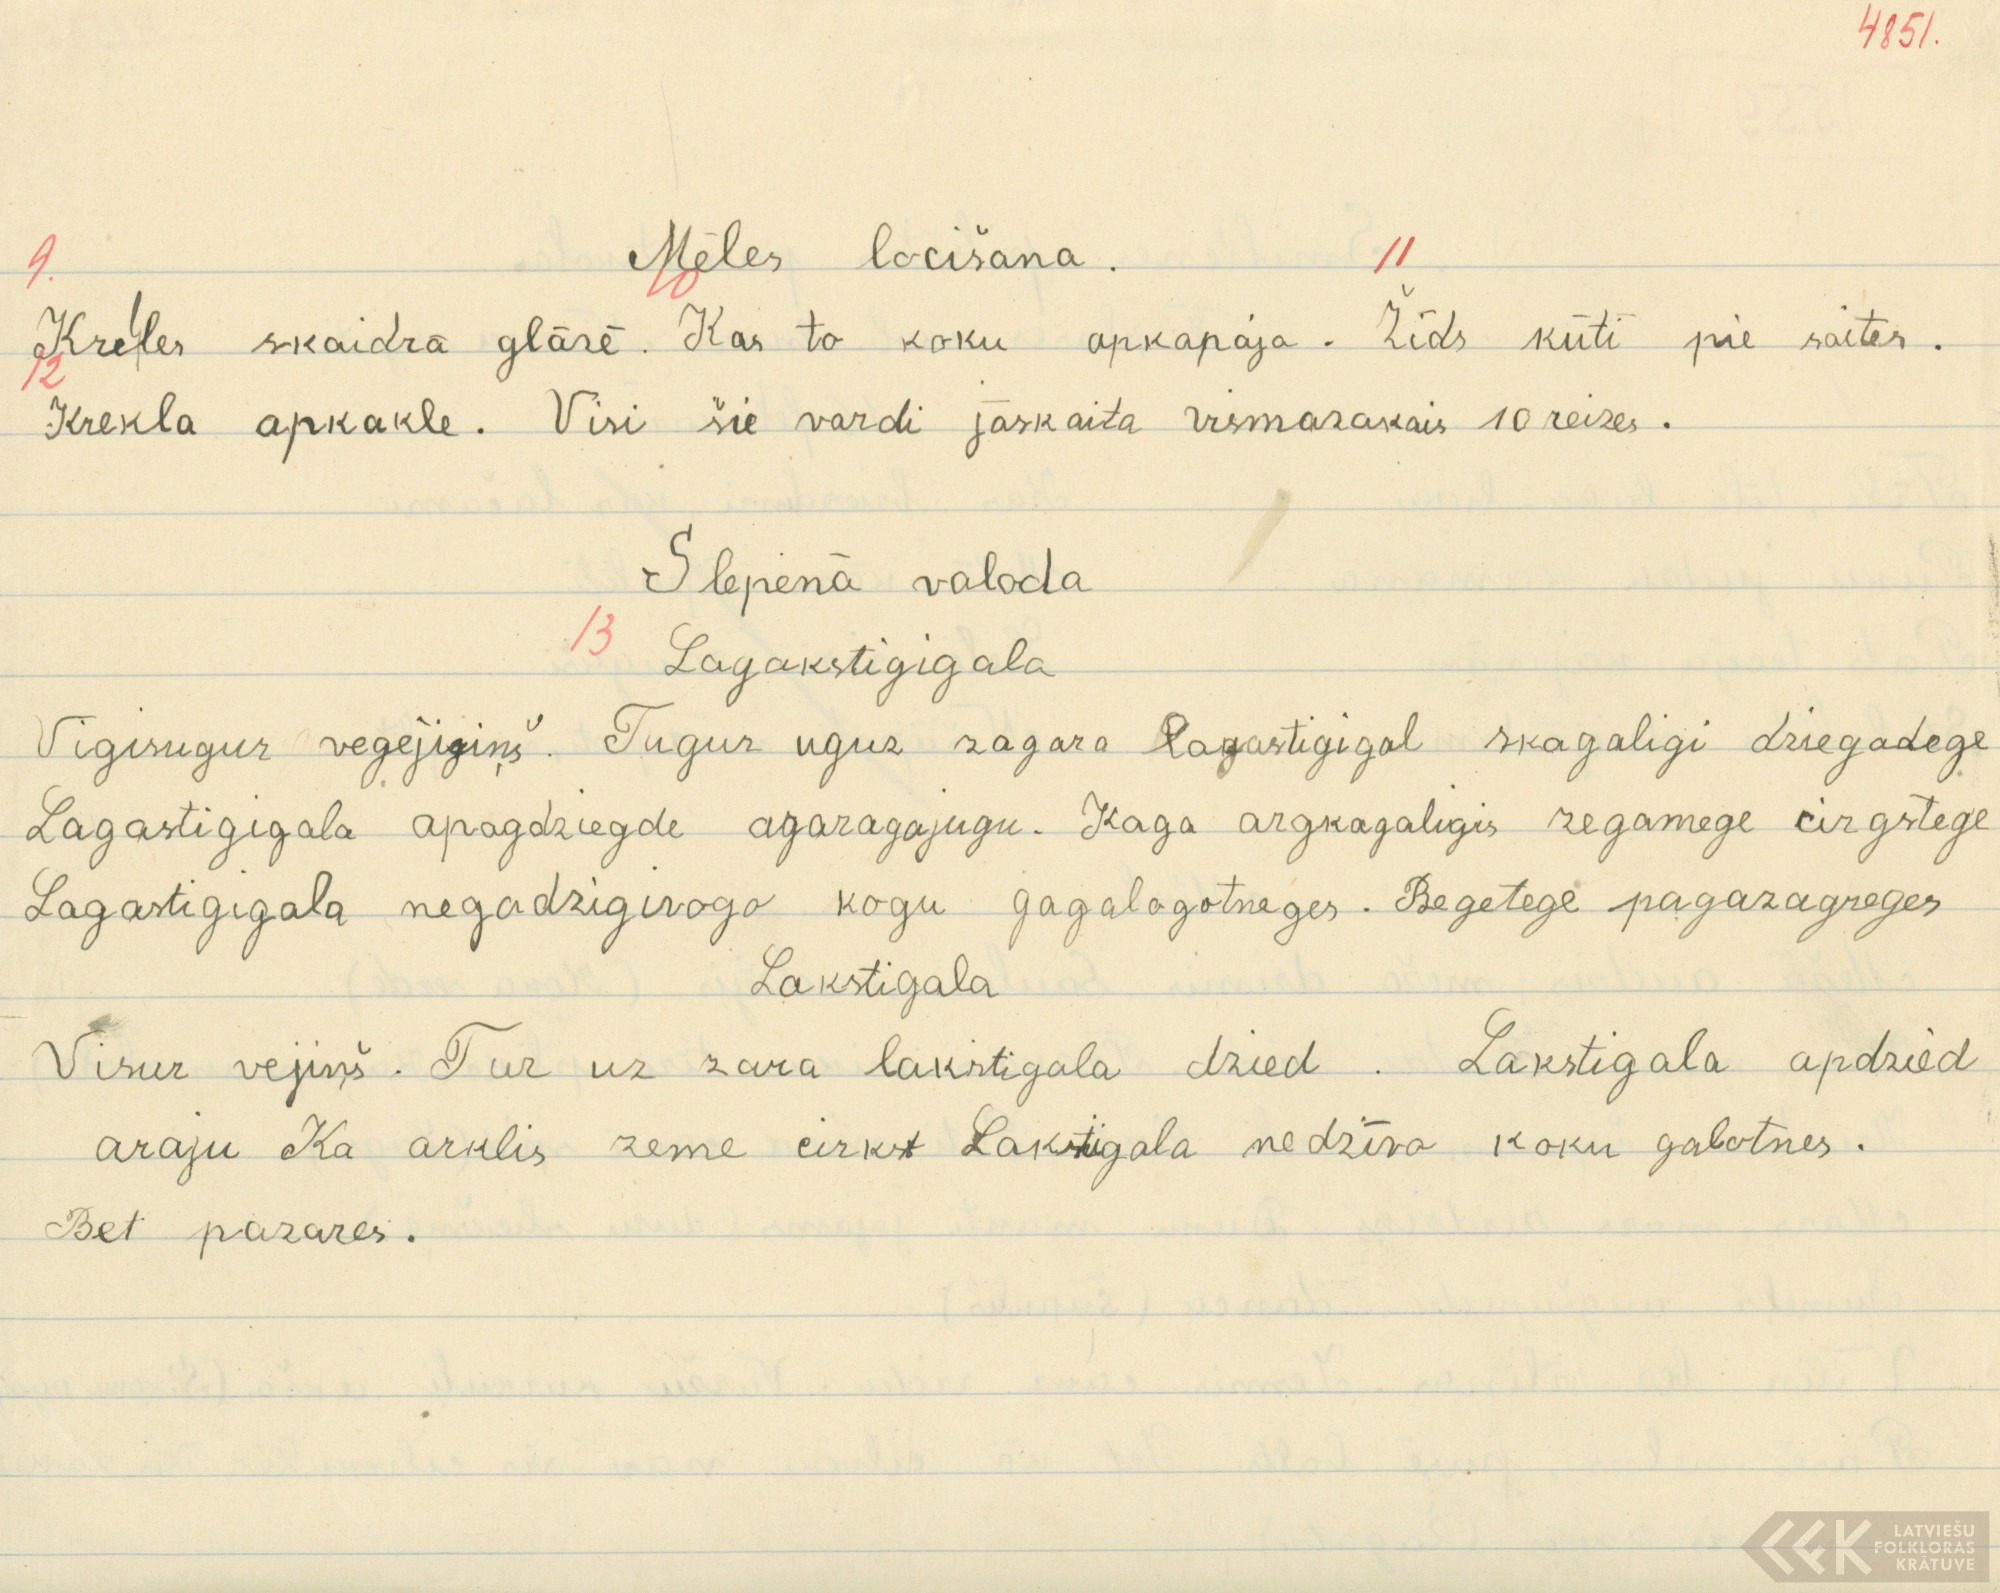 4851.
Mēles locišana.
9. 10 11
Krelles skaidrā glāzē. Kas to koku apkapāja. Žīds kūtī pie saites.
12
Krekla apkakle. Visi šie vardi jāskaita vismazakais 10 reizes.
Slepenā valoda
13 Lagakstigigala
Vigisugur vegējigiņš. Tugur uguz zagara Lagastigigal skagaligi dziegadege
Lagastigigala apagdziegde agaragajugu. Kaga argkagaligis zegamege cirgstege
Lagastigigala negadzigivogo kogu gagalogotneges. Begetege pagazagreges
Lakstigala
Visur vejiņš. Tur uz zara lakstigala dzied. Lakstigala apdzied
araju Ka arklis zeme cirkst Lakstigala nedzīvo koku galotnes.
Bet pazares.
LATVIEŠU
FOLKLORAS
KRĀTUVE